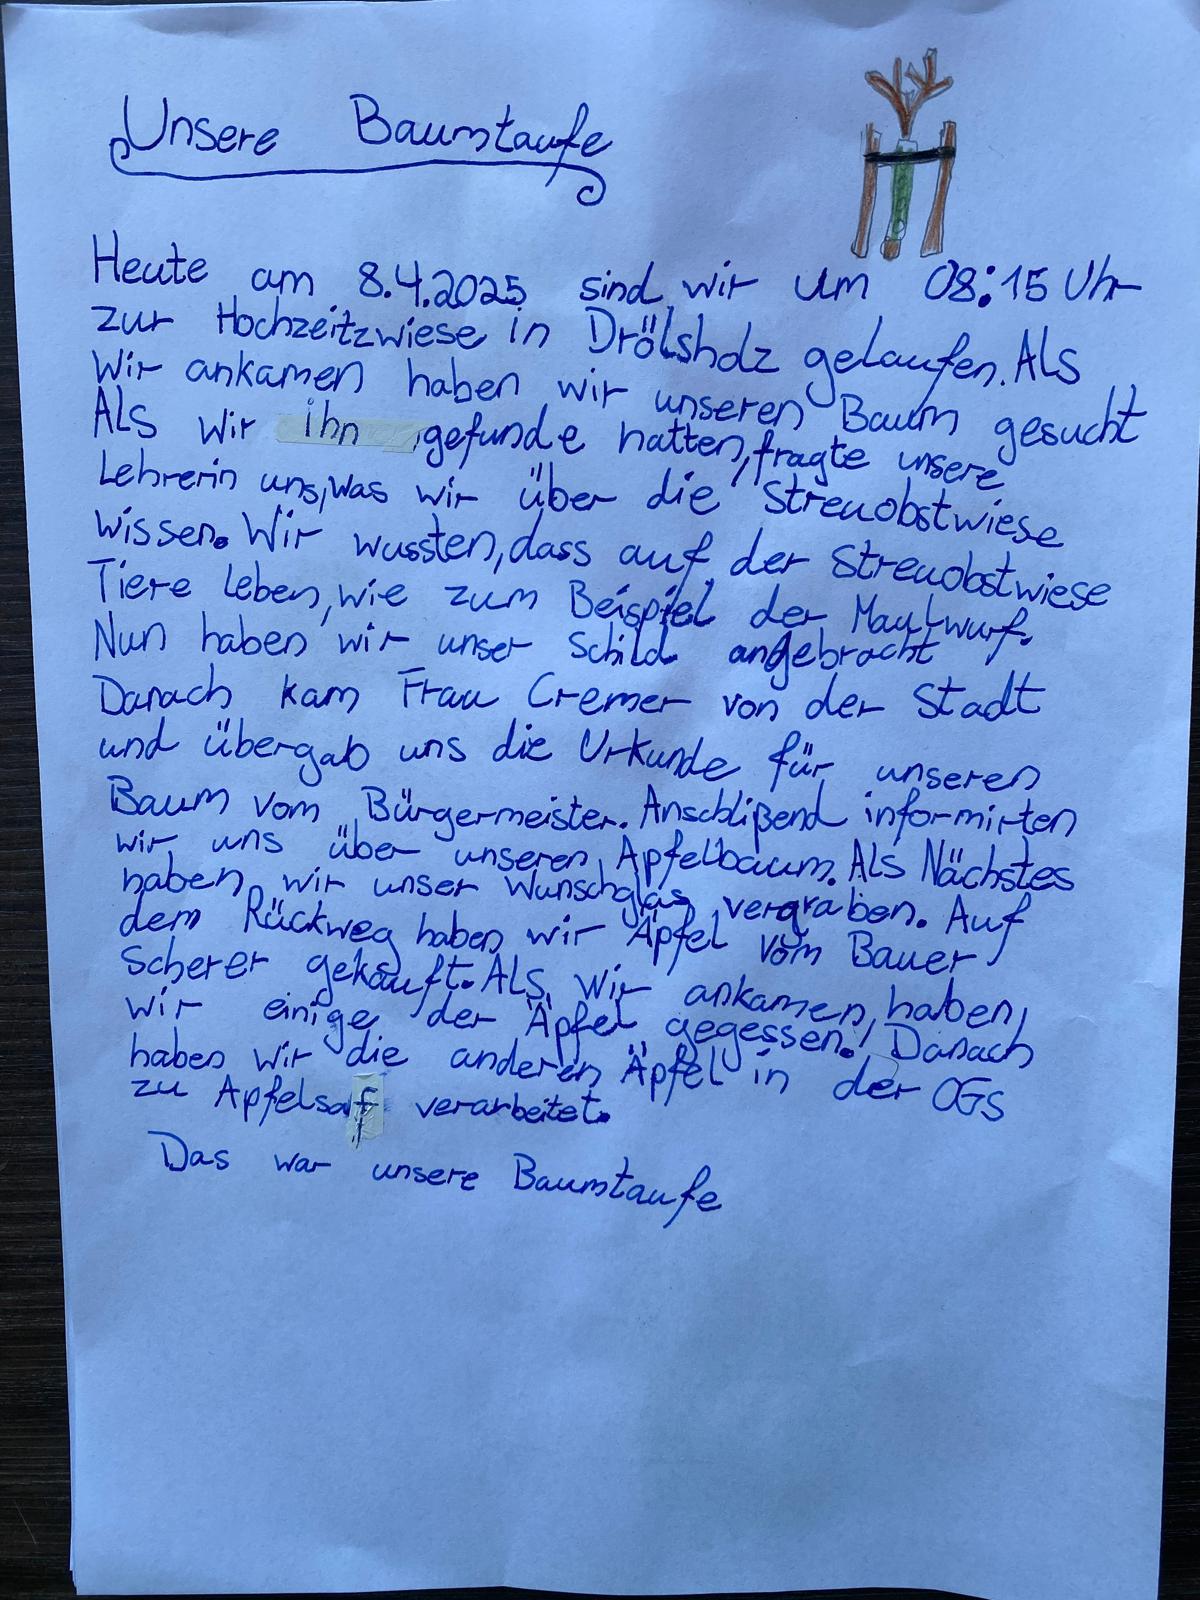 Unsere Baumtaufe
Heute am 8.4.2025 sind wir um 08:15 Uhr
zur Hochzeitzwiese in Drölsholz gelaufen. Als
wir ankamen haben wir unseren Baum gesucht
Als wir ihn gefunde hatten, fragte unsere
Lehrerin uns, was wir über die Streuobstwiese
wissen. Wir wussten, dass auf der Streuobstwiese
Tiere leben, wie zum Beispiel der Maulwurf.
Nun haben wir unser Schild angebracht
Danach kam Frau Cremer von der Stadt
und übergab uns die Urkunde für unseren
Baum vom Bürgermeister. Anschlißend informirten
wir uns über unseren Apfelbaum. Als Nächstes
haben wir unser Wunschglas vergraben. Auf
dem Rückweg haben wir Äpfel vom Bauer
Scherer gekauft. Als wir ankamen, haben
wir einige der Äpfel gegessen. Danach
haben wir die anderen Äpfel in der OGS
zu Apfelsaf verarbeitet.
Das war unsere Baumtaufe